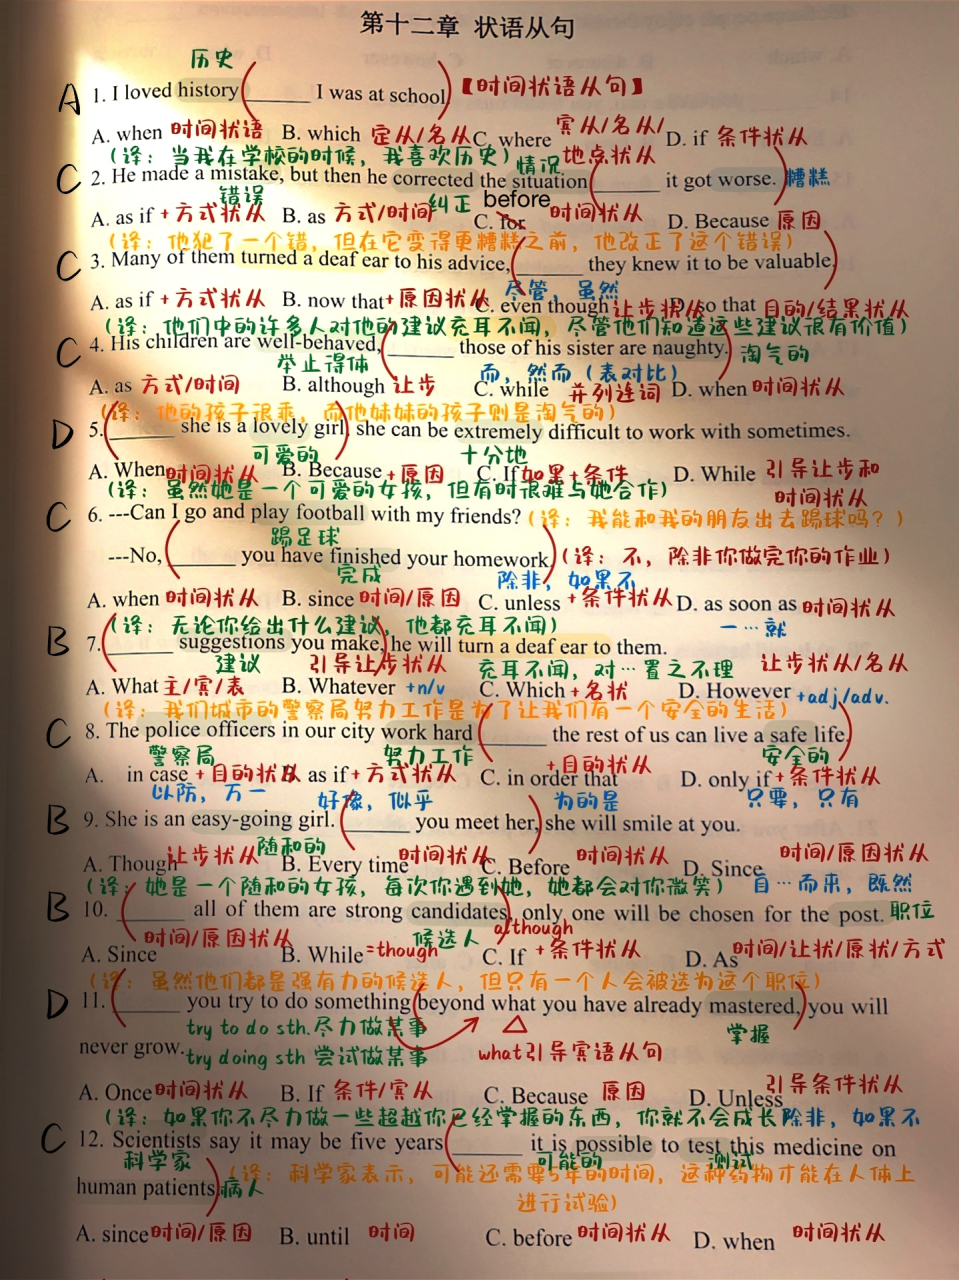 第十二章 状语从句
历史
A 1. I loved history ______ I was at school 【时间状语从句】
A. when 时间状语 B. which 定从/名从 C. where 宾从/名从/地点状从 D. if 条件状从
(译：当我在学校的时候，我喜欢历史) 情况
C 2. He made a mistake, but then he corrected the situation ______ it got worse. 糟糕
错误 纠正 before
A. as if + 方式状从 B. as 方式/时间 C. for 时间状从 D. Because 原因
(译：他犯了一个错，但在它变得更糟糕之前，他改正了这个错误)
C 3. Many of them turned a deaf ear to his advice, ______ they knew it to be valuable.
尽管，虽然
A. as if + 方式状从 B. now that + 原因状从 C. even though 让步状从 D. so that 目的/结果状从
(译：他们中的许多人对他的建议充耳不闻，尽管他们知道这些建议很有价值)
C 4. His children are well-behaved, ______ those of his sister are naughty. 淘气的
举止得体 而，然而（表对比）
A. as 方式/时间 B. although 让步 C. while 并列连词 D. when 时间状从
(译：他的孩子很乖，而他妹妹的孩子则是淘气的)
D 5. ______ she is a lovely girl, she can be extremely difficult to work with sometimes.
可爱的 十分地
A. When 时间状从 B. Because + 原因 C. If 如果+条件 D. While 引导让步和时间状从
(译：虽然她是一个可爱的女孩，但有时很难与她合作)
C 6. ---Can I go and play football with my friends? (译：我能和我的朋友出去踢球吗？)
踢足球
---No, ______ you have finished your homework. (译：不，除非你做完你的作业)
完成 除非，如果不
A. when 时间状从 B. since 时间/原因 C. unless +条件状从 D. as soon as 时间状从
(译：无论你给出什么建议，他都充耳不闻) 一…就
B 7. ______ suggestions you make, he will turn a deaf ear to them.
建议 引导让步状从 充耳不闻，对…置之不理 让步状从/名从
A. What 主/宾/表 B. Whatever +n/v C. Which + 名状 D. However +adj/adv.
(译：我们城市的警察局努力工作是为了让我们有一个安全的生活)
C 8. The police officers in our city work hard ______ the rest of us can live a safe life.
警察局 努力工作 安全的
A. in case + 目的状从 B. as if + 方式状从 C. in order that +目的状从 D. only if + 条件状从
以防，万一 好像，似乎 为的是 只要，只有
B 9. She is an easy-going girl. ______ you meet her, she will smile at you.
随和的
A. Though 让步状从 B. Every time 时间状从 C. Before 时间状从 D. Since 时间/原因状从
(译：她是一个随和的女孩，每次你遇到她，她都会对你微笑) 自…而来，既然
B 10. ______ all of them are strong candidates, only one will be chosen for the post. 职位
候选人 although
A. Since 时间/原因状从 B. While =though C. If +条件状从 D. As 时间/让状/原状/方式
(译：虽然他们都是强有力的候选人，但只有一个人会被选为这个职位)
D 11. ______ you try to do something beyond what you have already mastered, you will
try to do sth.尽力做某事 掌握
never grow. try doing sth 尝试做某事 what引导宾语从句
A. Once 时间状从 B. If 条件/宾从 C. Because 原因 D. Unless 引导条件状从
(译：如果你不尽力做一些超越你已经掌握的东西，你就不会成长 除非，如果不
C 12. Scientists say it may be five years ______ it is possible to test this medicine on
科学家 可能的 测试
human patients. 病人 (译：科学家表示，可能还需要5年的时间，这种药物才能在人体上
进行试验)
A. since 时间/原因 B. until 时间 C. before 时间状从 D. when 时间状从